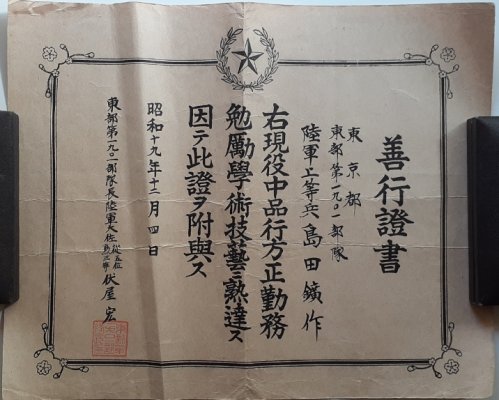 善行證書
東京都
東部第一九〇一部隊
陸軍上等兵 島田鑛作
右現役中品行方正勤務
勉厲學術技藝ニ熟達ス
因テ此證ヲ附與ス
昭和十九年十二月四日
東部第一九〇一部隊長陸軍大佐 從五位 勲三等 伏屋宏